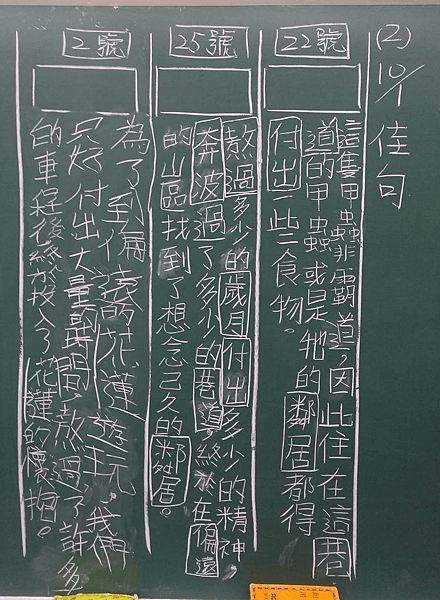 (2) 10/1 佳句
22號
這隻甲蟲霸道，因此住在這巷
道的甲蟲或是牠的鄰居都得
付出一些食物。
25號
熬過多少的歲月付出多少的精神
奔波過了多少的巷道，終於在偏遠
的山區找到了想念已久的鄰居。
2號
為了到偏遠花蓮遊玩，我們
只好付出大量時間，熬過了許多
的車程後終於投入了花蓮的懷抱。